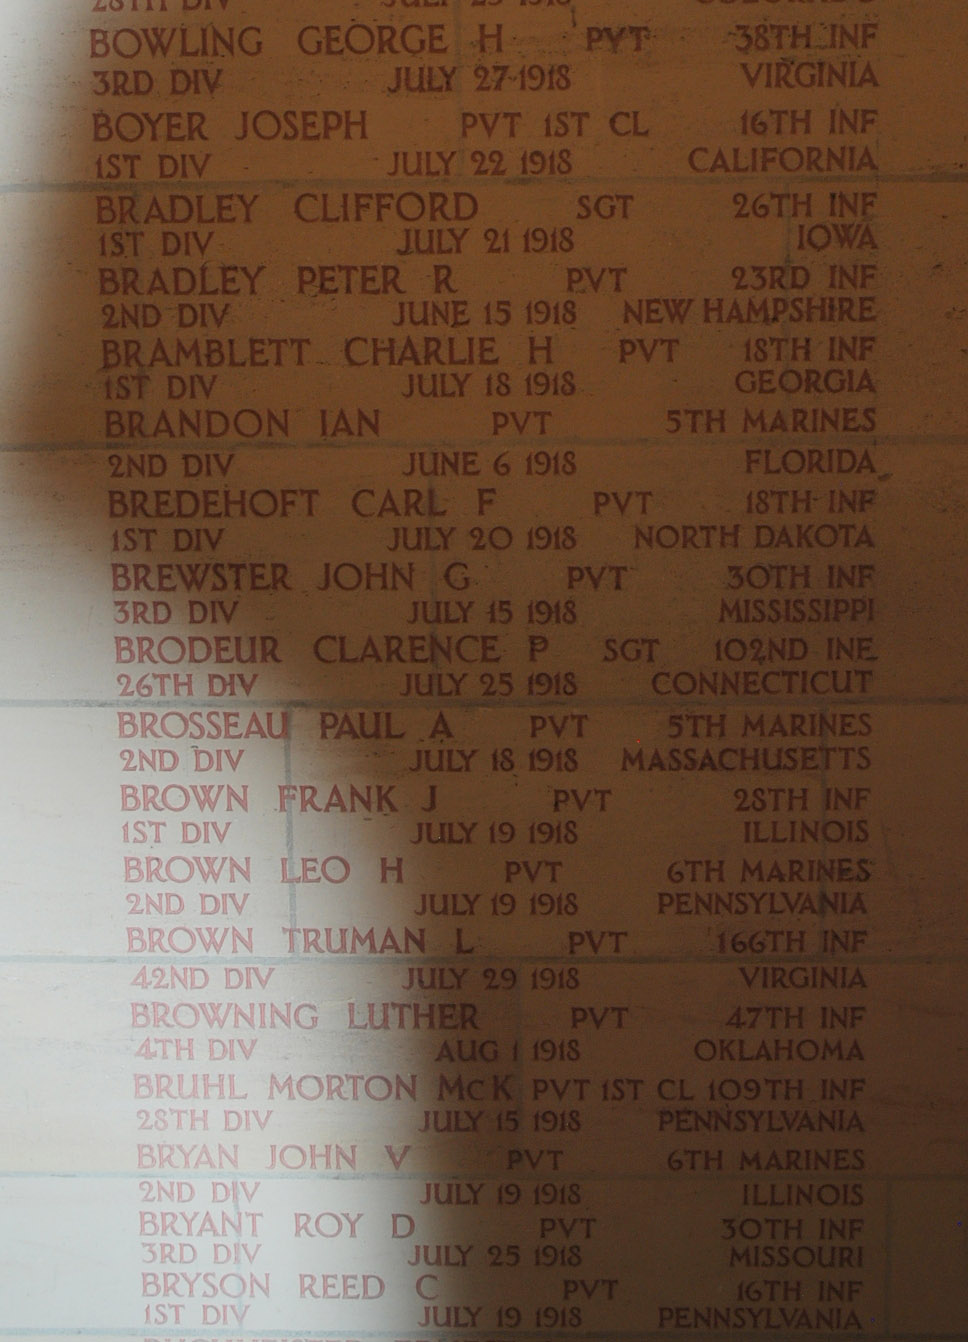 28TH DIV JULY 29 1918 COLORADO
BOWLING GEORGE H PVT 38TH INF
3RD DIV JULY 27 1918 VIRGINIA
BOYER JOSEPH PVT 1ST CL 16TH INF
1ST DIV JULY 22 1918 CALIFORNIA
BRADLEY CLIFFORD SGT 26TH INF
1ST DIV JULY 21 1918 IOWA
BRADLEY PETER R PVT 23RD INF
2ND DIV JUNE 15 1918 NEW HAMPSHIRE
BRAMBLETT CHARLIE H PVT 18TH INF
1ST DIV JULY 18 1918 GEORGIA
BRANDON IAN PVT 5TH MARINES
2ND DIV JUNE 6 1918 FLORIDA
BREDEHOFT CARL F PVT 18TH INF
1ST DIV JULY 20 1918 NORTH DAKOTA
BREWSTER JOHN G PVT 30TH INF
3RD DIV JULY 15 1918 MISSISSIPPI
BRODEUR CLARENCE P SGT 102ND INF
26TH DIV JULY 25 1918 CONNECTICUT
BROSSEAU PAUL A PVT 5TH MARINES
2ND DIV JULY 18 1918 MASSACHUSETTS
BROWN FRANK J PVT 28TH INF
1ST DIV JULY 19 1918 ILLINOIS
BROWN LEO H PVT 6TH MARINES
2ND DIV JULY 19 1918 PENNSYLVANIA
BROWN TRUMAN L PVT 166TH INF
42ND DIV JULY 29 1918 VIRGINIA
BROWNING LUTHER PVT 47TH INF
4TH DIV AUG 1 1918 OKLAHOMA
BRUHL MORTON McK PVT 1ST CL 109TH INF
28TH DIV JULY 15 1918 PENNSYLVANIA
BRYAN JOHN V PVT 6TH MARINES
2ND DIV JULY 19 1918 ILLINOIS
BRYANT ROY D PVT 30TH INF
3RD DIV JULY 25 1918 MISSOURI
BRYSON REED C PVT 16TH INF
1ST DIV JULY 19 1918 PENNSYLVANIA